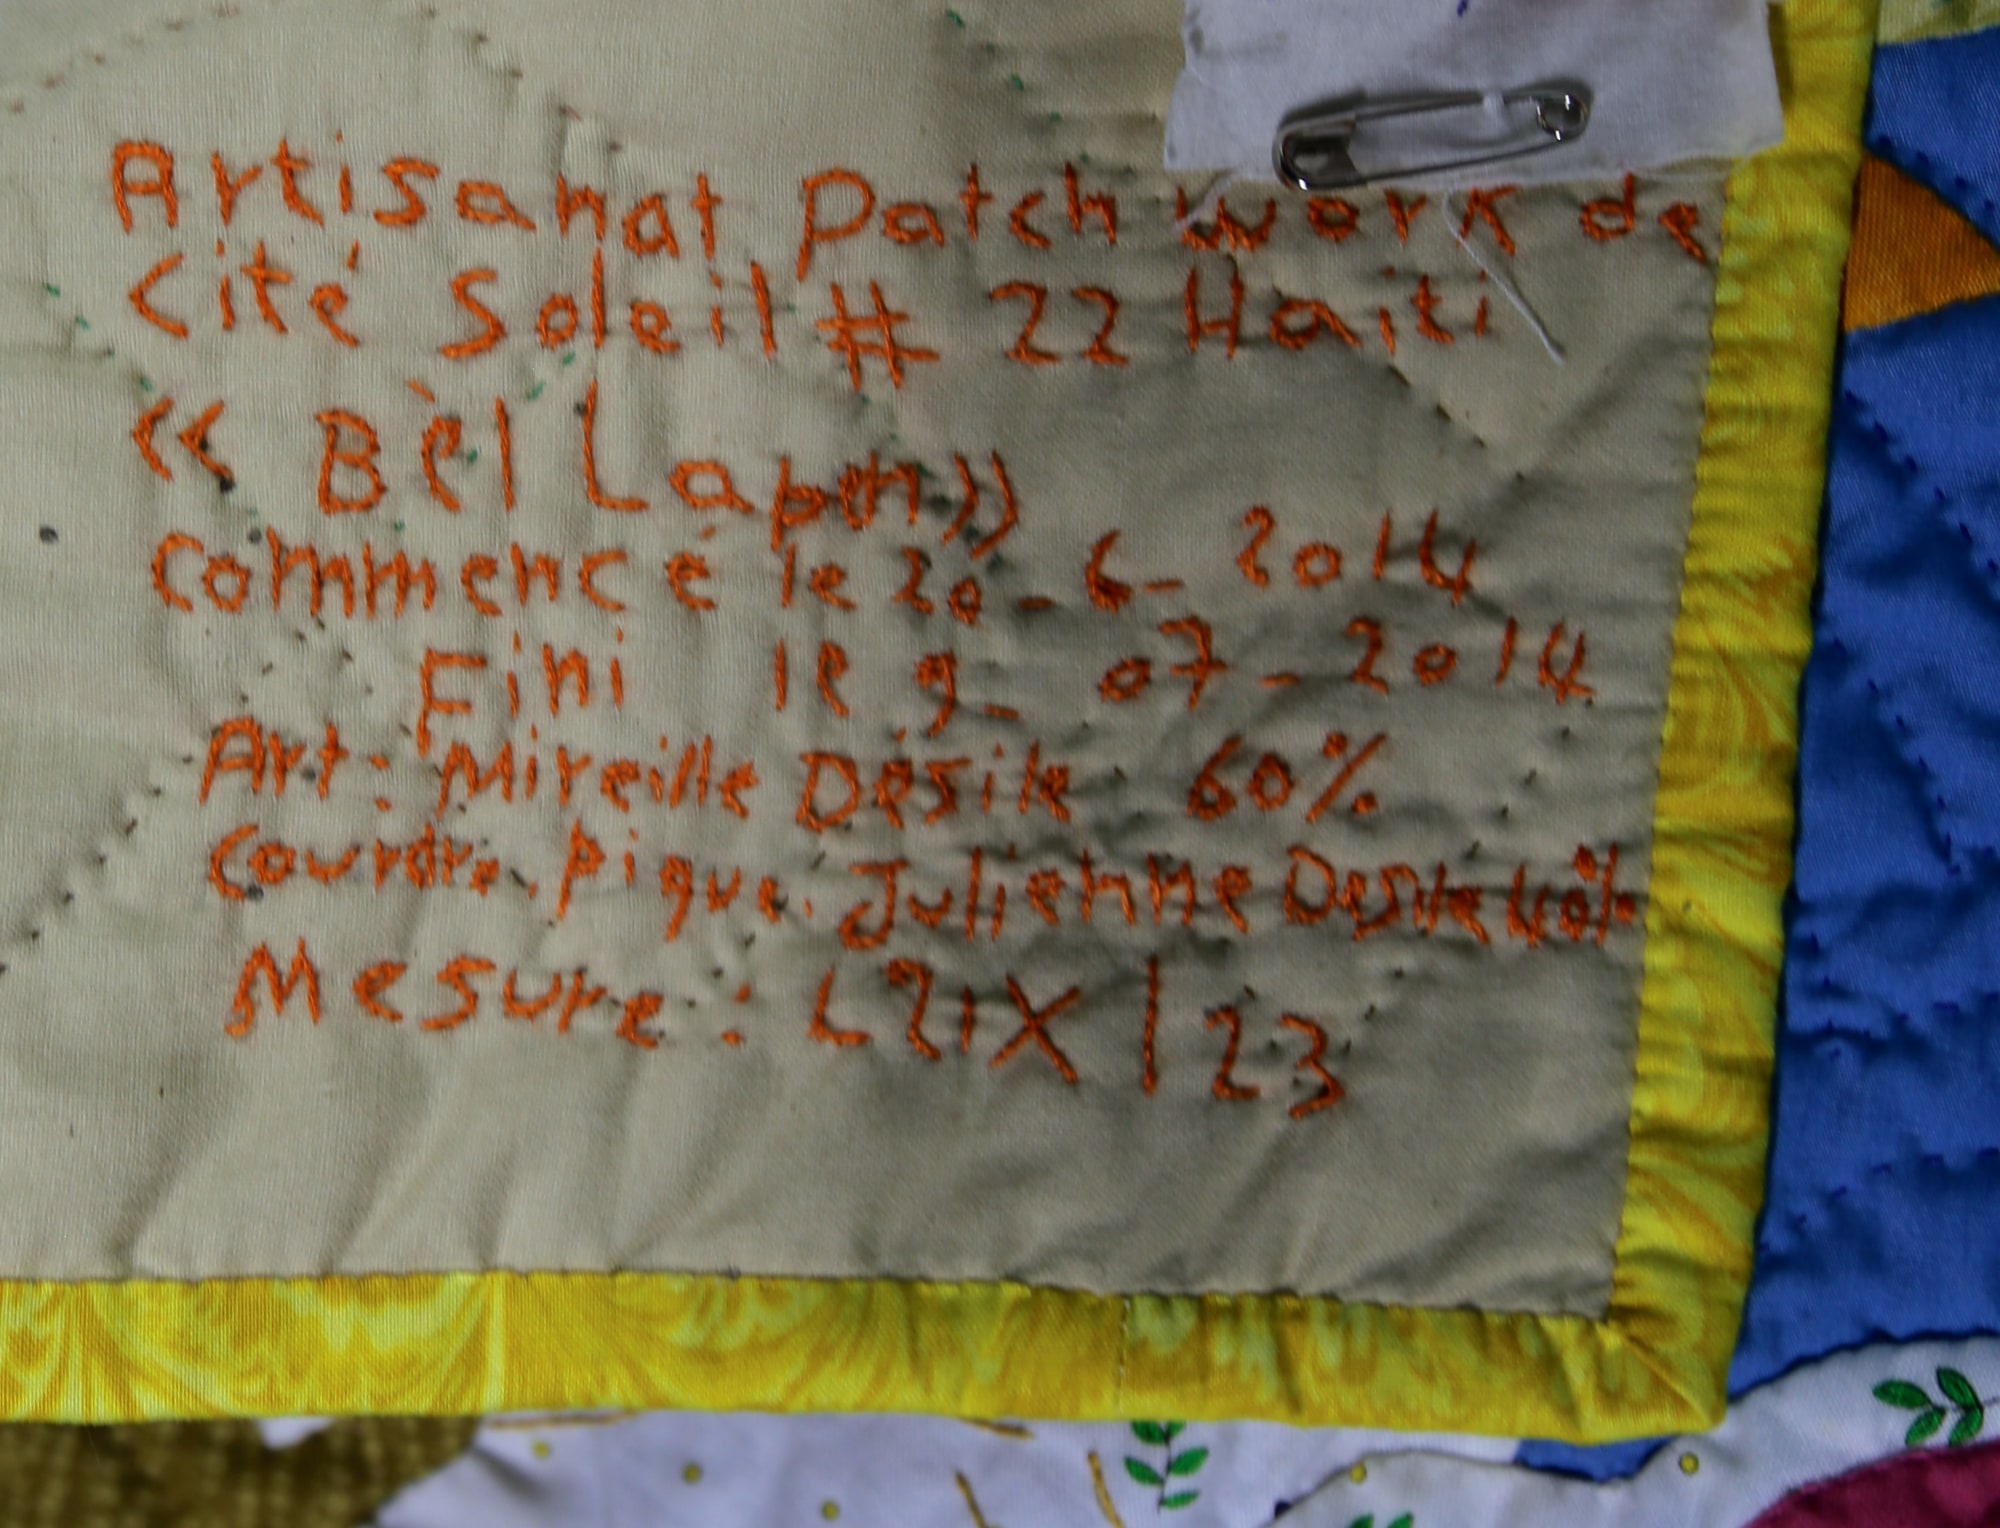 Artisanat Patch work de
Cité Soleil # 22 Haiti
<< Bèl Lapen>>
Commencé le 20_6_2014
Fini le 9_07_2014
Art: Mireille Désile 60%
Courdre. Pique. Julienne Desile 40%
Mesure: L21X l 23